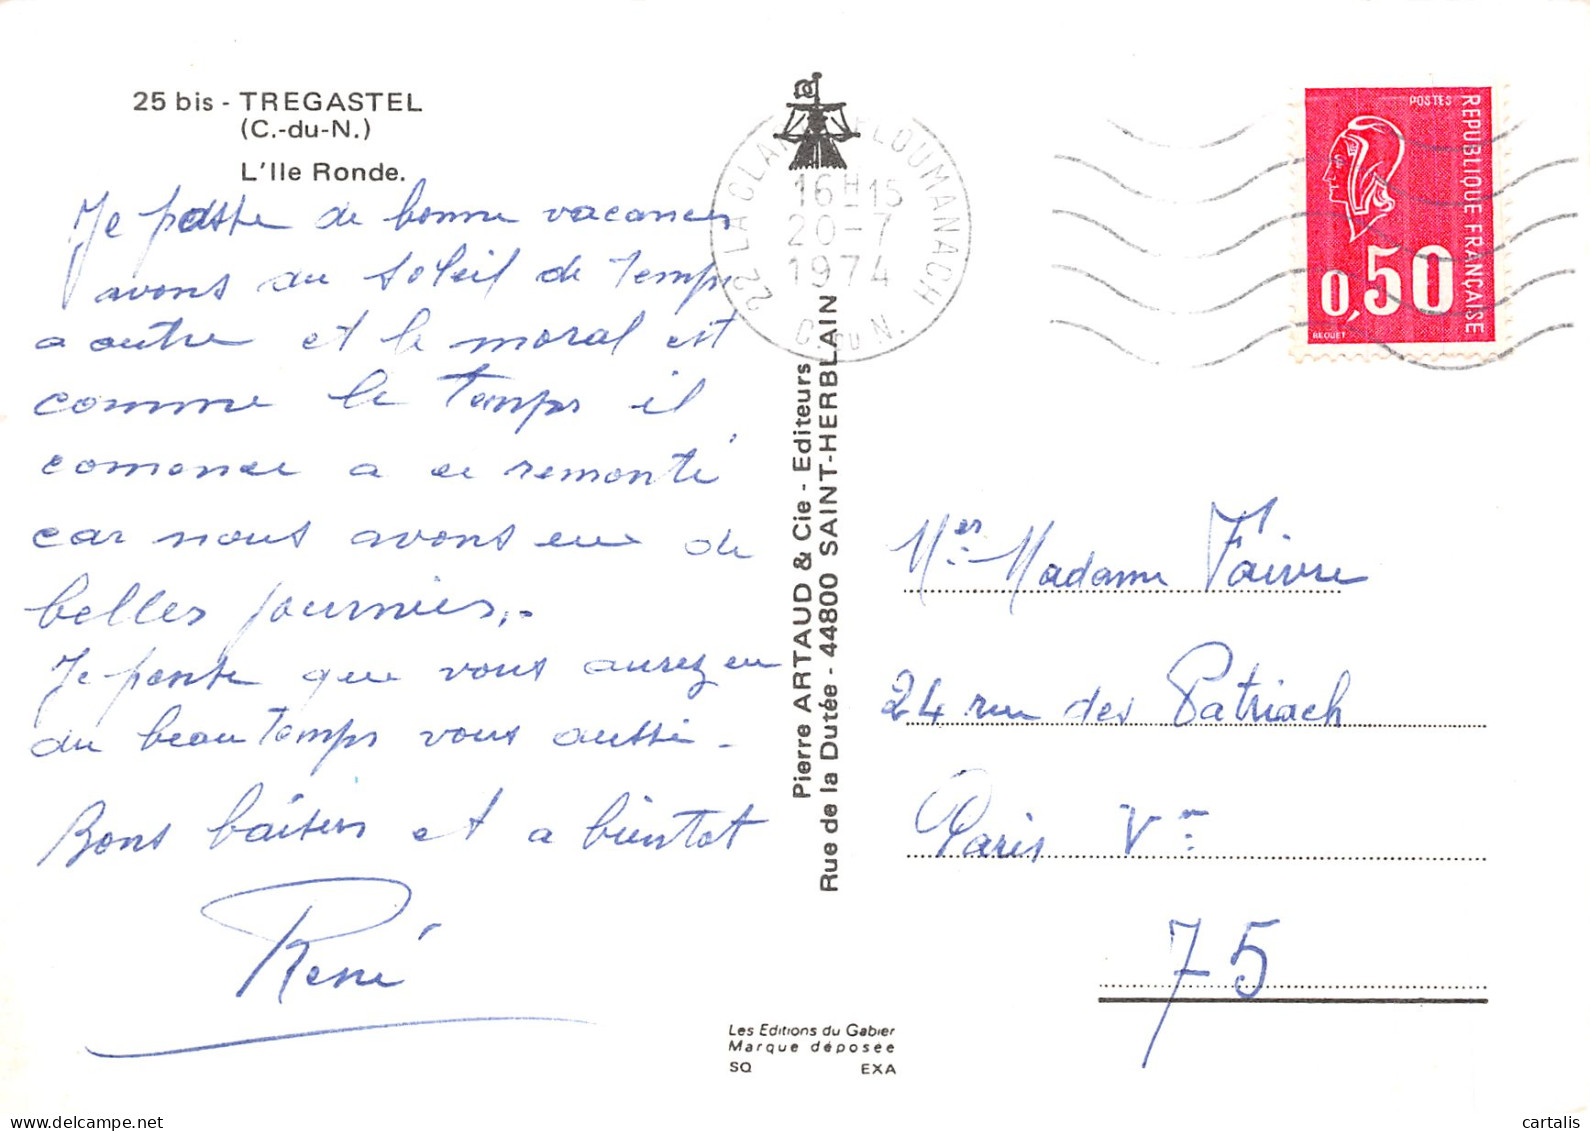 25 bis - TREGASTEL
(C.-du-N.)
L'Ile Ronde.
Je passe de bonne vacances
avons du soleil de temps
a autre et le moral est
comme le temps il
comence a ce remonté
car nous avons eue de
belles journies,.-
Je pense que vous aurez eu
du beau temps vous aussi -
Bons baisers et a bientot
René
22 LA CLARTE PLOUMANACH
16H15
20-7
1974
C. DU N.
POSTES
REPUBLIQUE FRANÇAISE
0,50
BEQUET
Pierre ARTAUD & Cie - Editeurs
Rue de la Dutée - 44800 SAINT-HERBLAIN
Mer. Madame Faivre
24 rue des Patriach
Paris Vm
75
Les Editions du Gabier
Marque déposée
SQ EXA
cartalis
www.delcampe.net